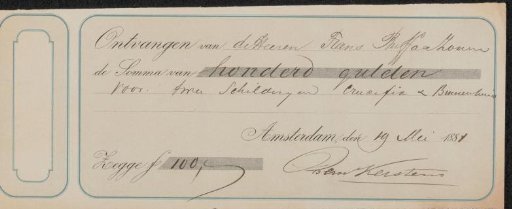 Ontvangen van de Heeren Frans Buffa & Zonen
de Somma van honderd gulden
Voor twee Schilderijen Crucifix & Binnenhuis
Amsterdam, den 19 Mei 1881
Zegge f 100,-
Kerstens